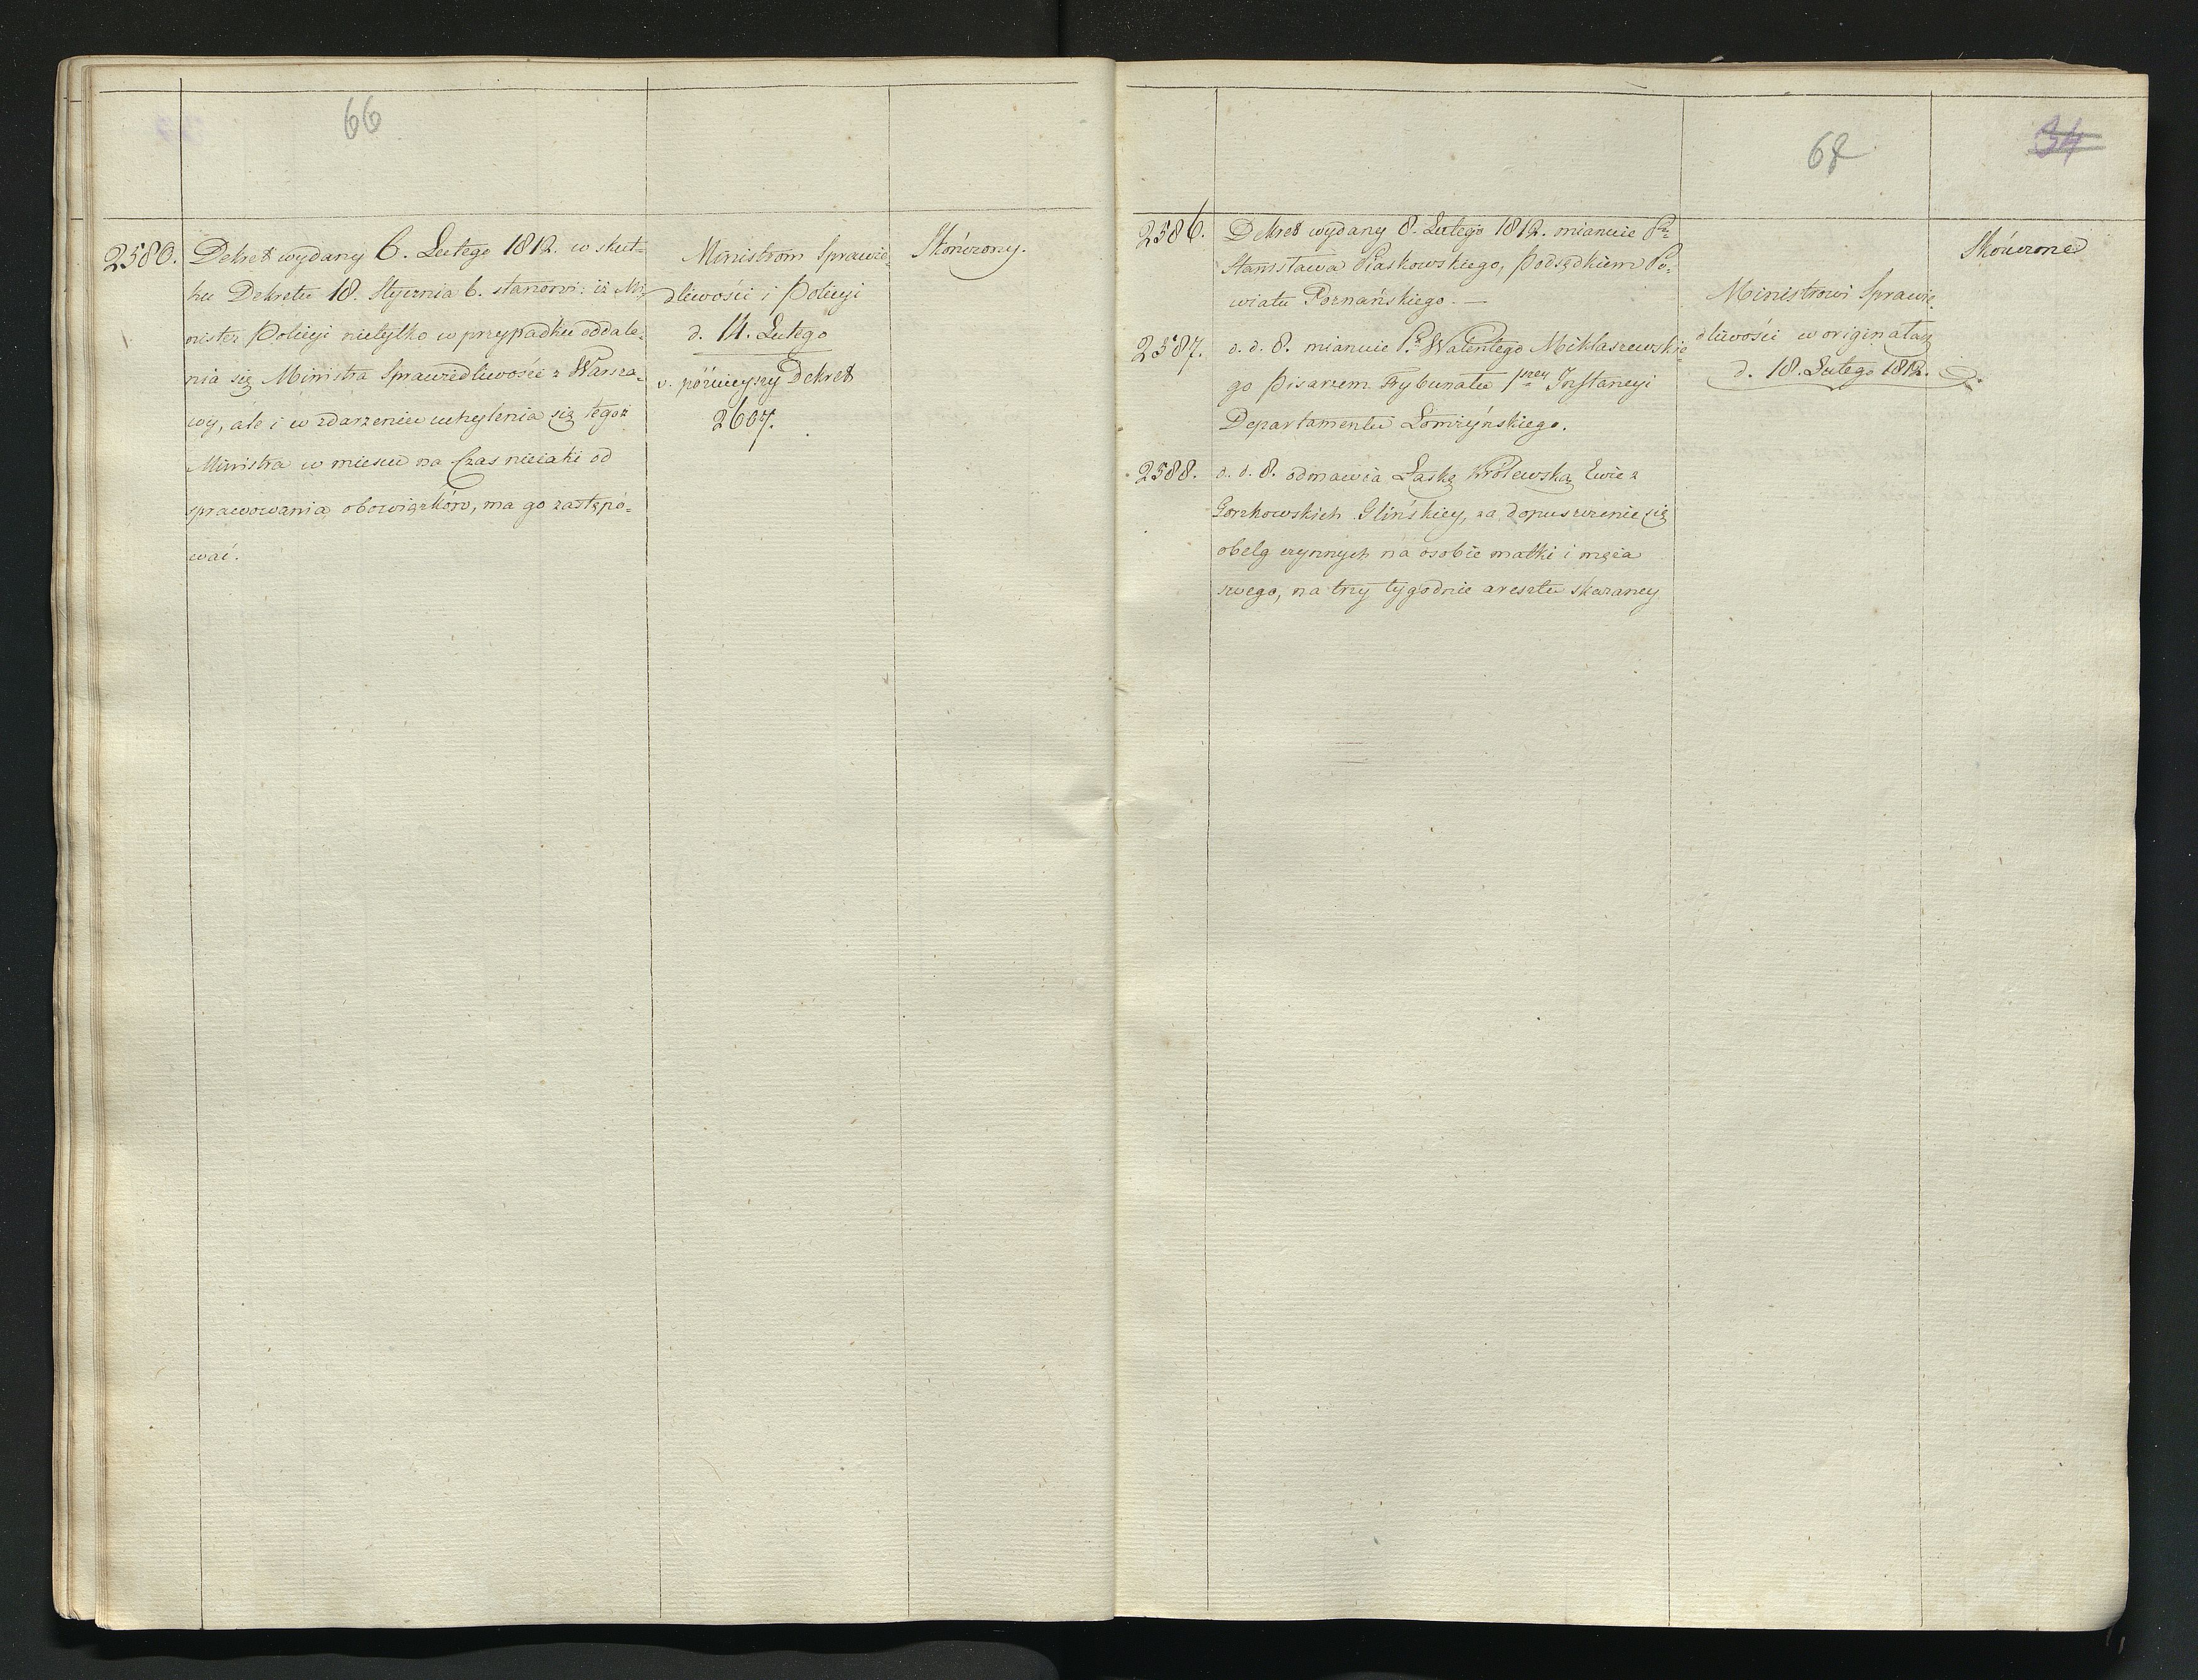 66
2580. Dekret wydany 6. Lutego 1812. w skut=
ku Dekretu 18. Stycznia b. stanowi: iż Mi=
nister Policyi nietylko w przypadku oddale=
nia się Ministra Sprawiedliwości z Warsza=
wy, ale i w zdarzeniu uchylenia się tegoż
Ministra w miescu na Czas nieiaki od
sprawowania obowiązków, ma go zastępo=
wać.
Ministrom Sprawie=
dliwości i Policyi
d. 14. Lutego
v. pózniejszy Dekret
2607.
Skończony.
68
34
2586. Dekret wydany 8. Lutego 1812. mianuie Pa=
Stanisława Piaskowskiego, Podsędkiem Po=
wiatu Poznańskiego. —
2587. d. d. 8. mianuie Pa Walentego Miklaszewskie=
go Pisarzem Trybunału 1szey Instancyi
Departamentu Łomżyńskiego.
2588. d. d. 8. odmawia Łaskę Królewską Ewie z
Gorzkowskich Glińskiey, za dopuszczenie się
obelg czynnych na osobie matki i męża
swego, na trzy tygodnie aresztu skazaney
Ministrowi Sprawie=
dliwości w originałach
d. 18. Lutego 1812.
Skończone